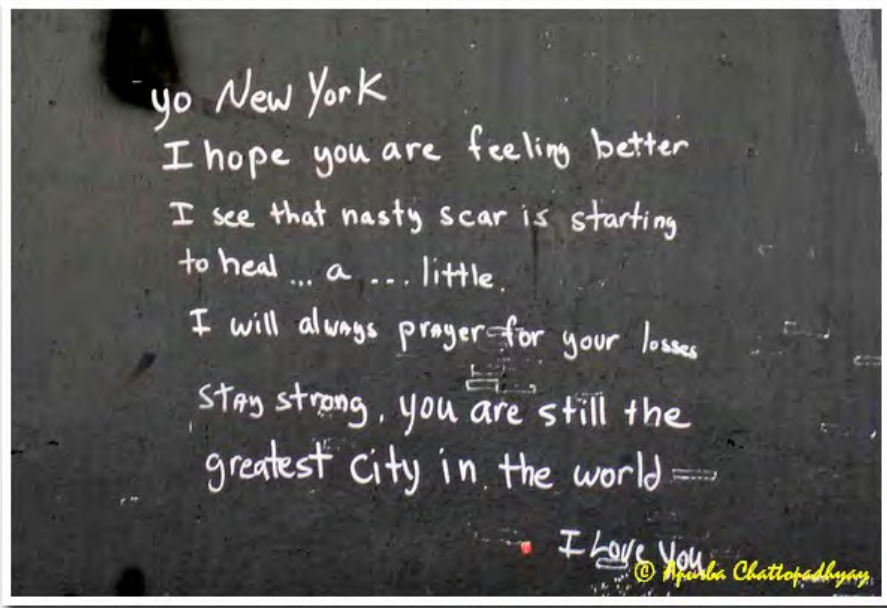 yo New York
I hope you are feeling better
I see that nasty scar is starting
to heal ... a ... little.
I will always prayer for your losses
stay strong, you are still the
greatest city in the world
I Love You
© Apurba Chattopadhyay